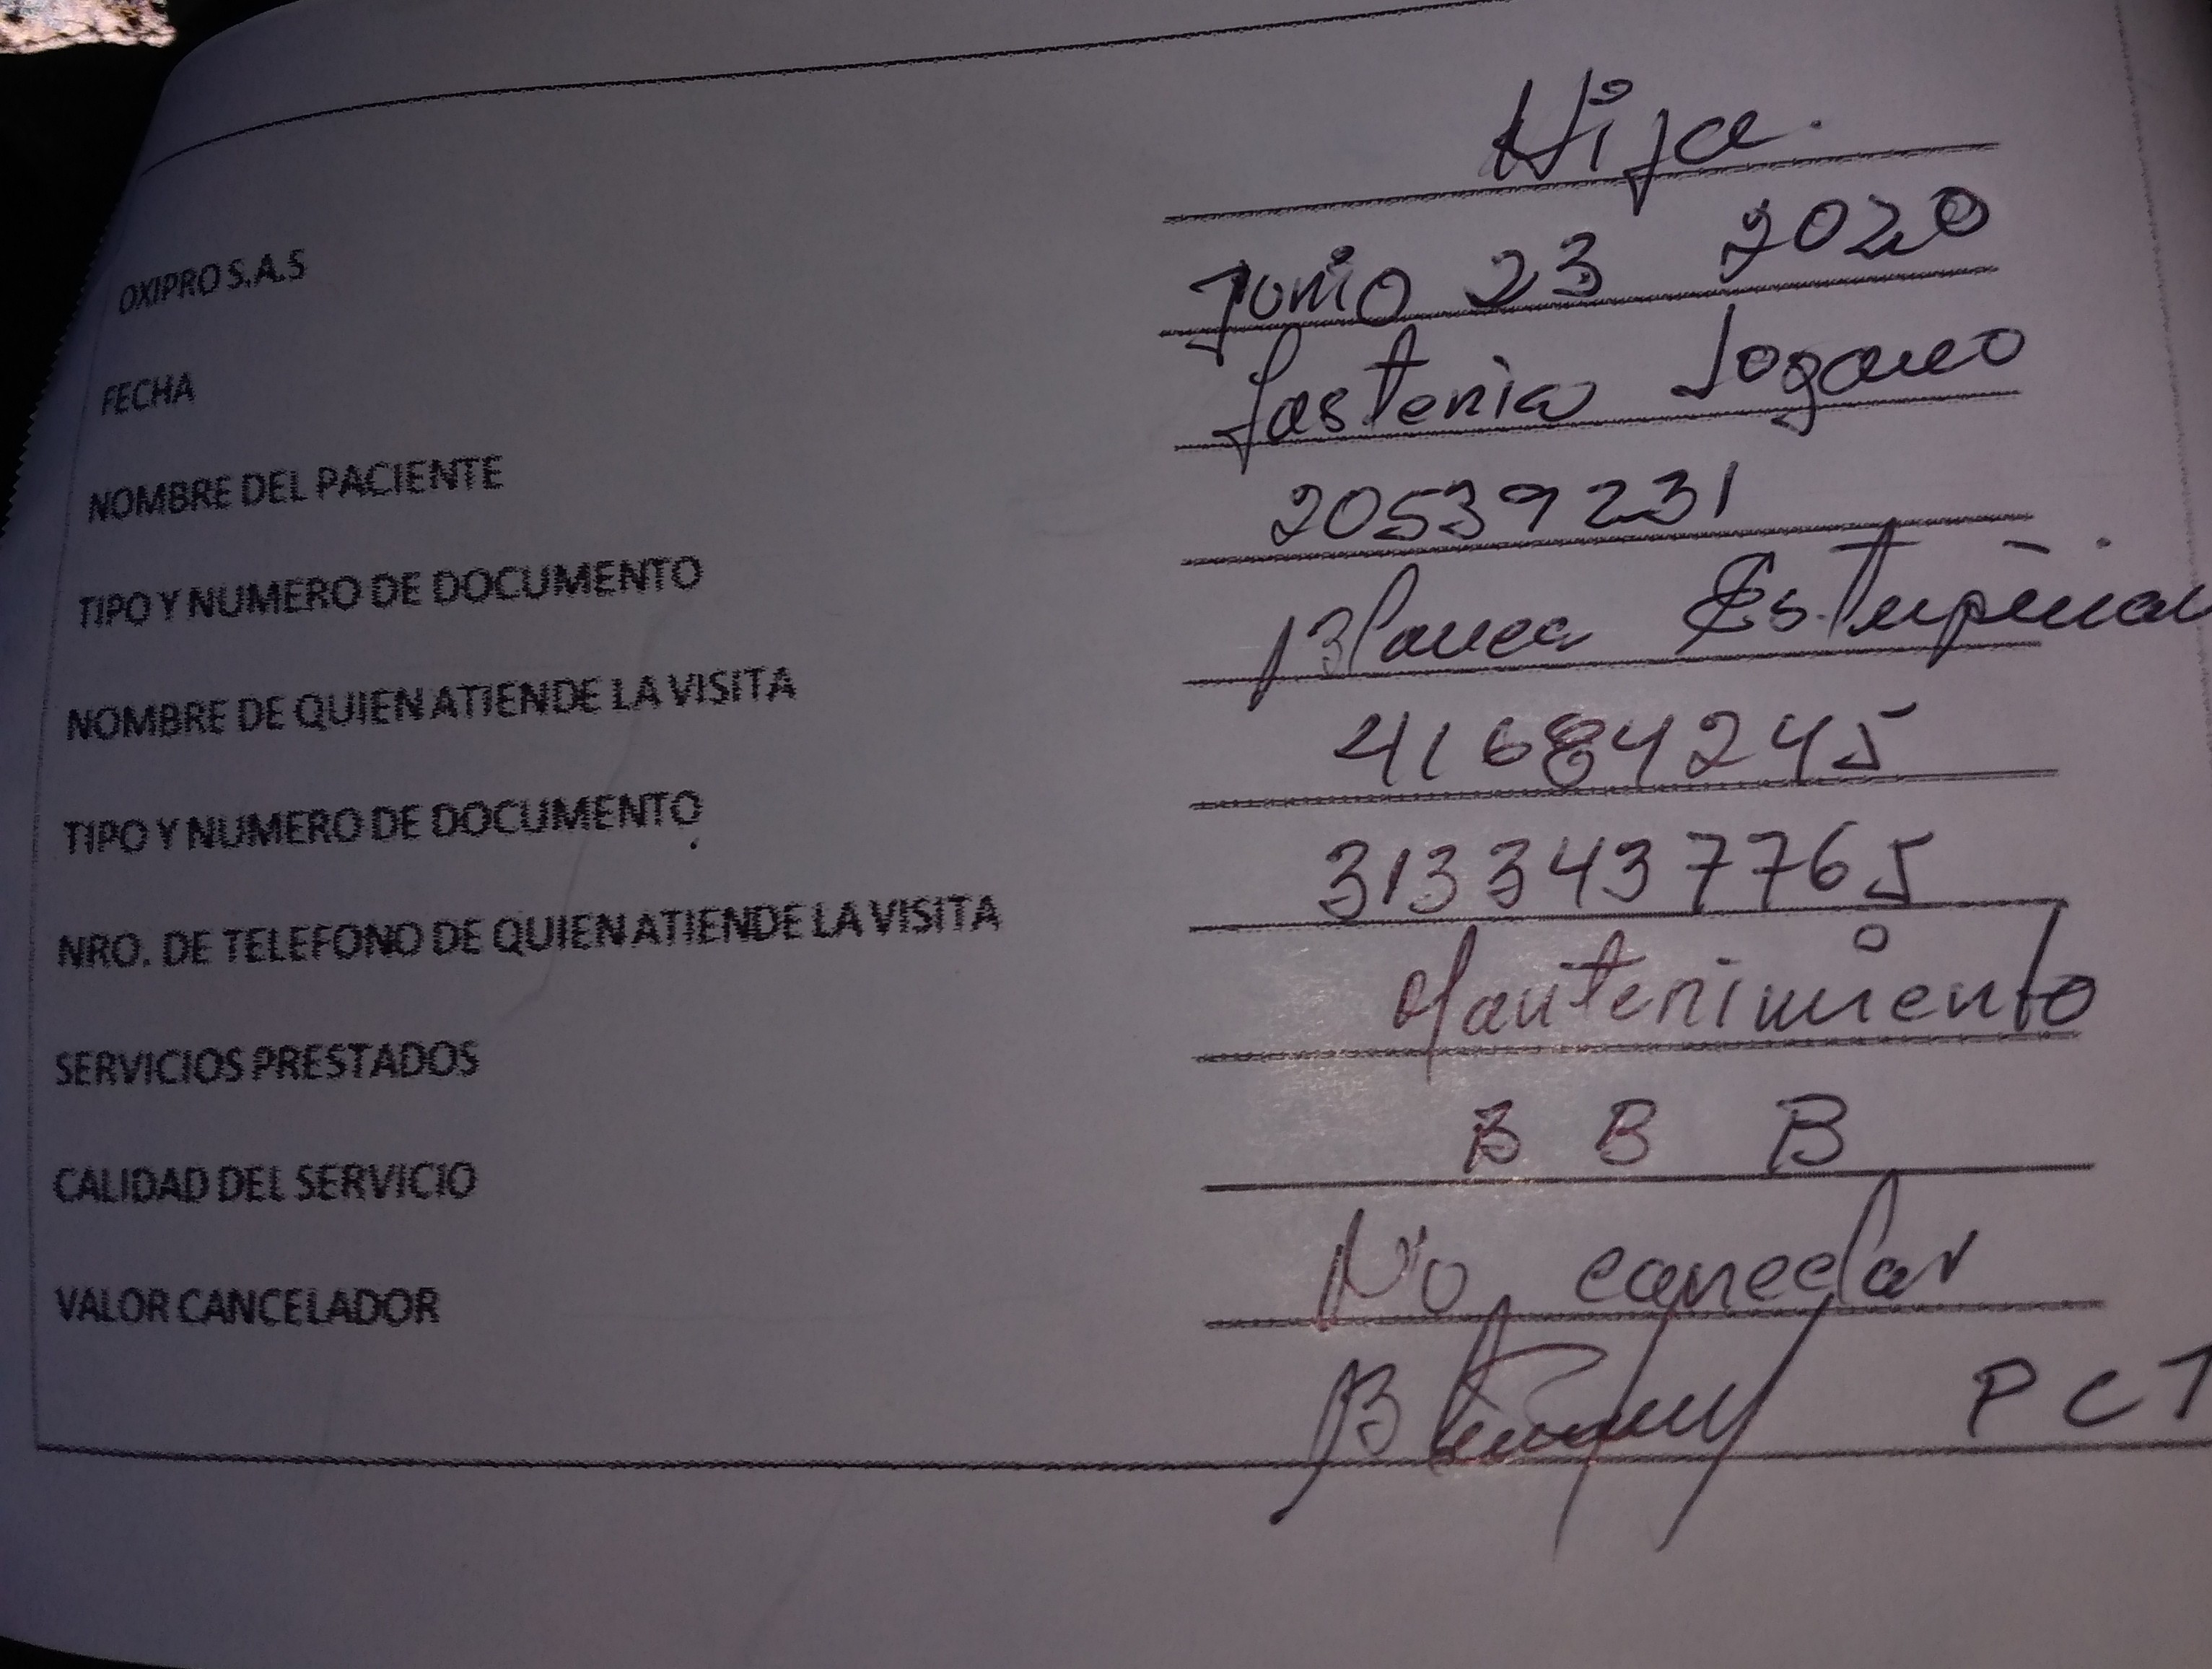 OXIPRO S.A.S Hija.
FECHA Junio 23 2020
NOMBRE DEL PACIENTE Sogamo
TIPO Y NUMERO DE DOCUMENTO 20539231
NOMBRE DE QUIEN ATIENDE LA VISITA Blanca Estupiñan
TIPO Y NUMERO DE DOCUMENTO 41684245
NRO. DE TELEFONO DE QUIEN ATIENDE LA VISITA 3133437765
SERVICIOS PRESTADOS Mantenimiento
CALIDAD DEL SERVICIO B B B
VALOR CANCELADOR No cancelar
PCT